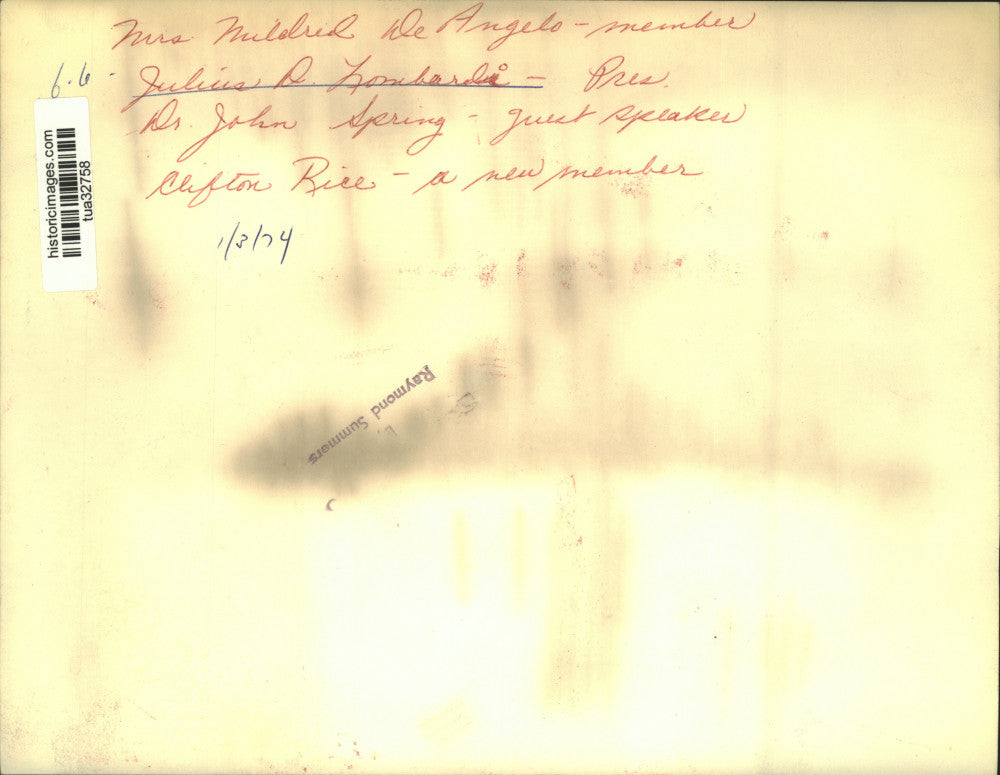 Mrs. Mildred De Angelo - member
6.6. Julius D. Lombardi - Pres.
Dr. John Spring - guest speaker
Clifton Rice - a new member
1/3/74
historicimages.com
tua32758
Raymond Summers